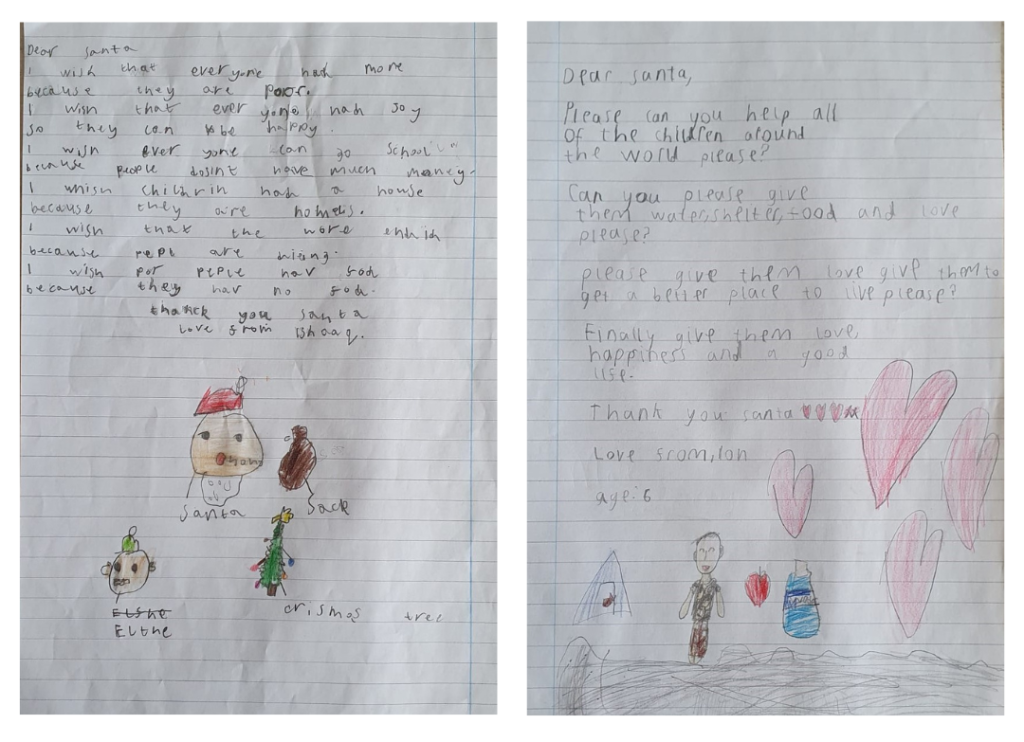 Dear santa
I wish that everyone hah more
because they are poor.
I wish that ever yone hah Joy
so they can be happy.
I wish ever yone can go School
because people dosint have much maney.
I whish Chilhrin hah a house
because they are homels.
I wish that the wore endish
because pepl are
I wish por peple hav foh
because they hav no foh.
thanck you santa
Love from Ishaaq.
hoho
Santa
Sack
Elfhe
Elfhe
crismas tree
Dear santa,
Please can you help all
of the children around
the world please?
Can you please give
them water, shelter, food and love
please?
please give them love give them to
get a better place to live please?
Finally give them love,
happiness and a good
life.
Thank you santa
Love from, Ion
age: 6